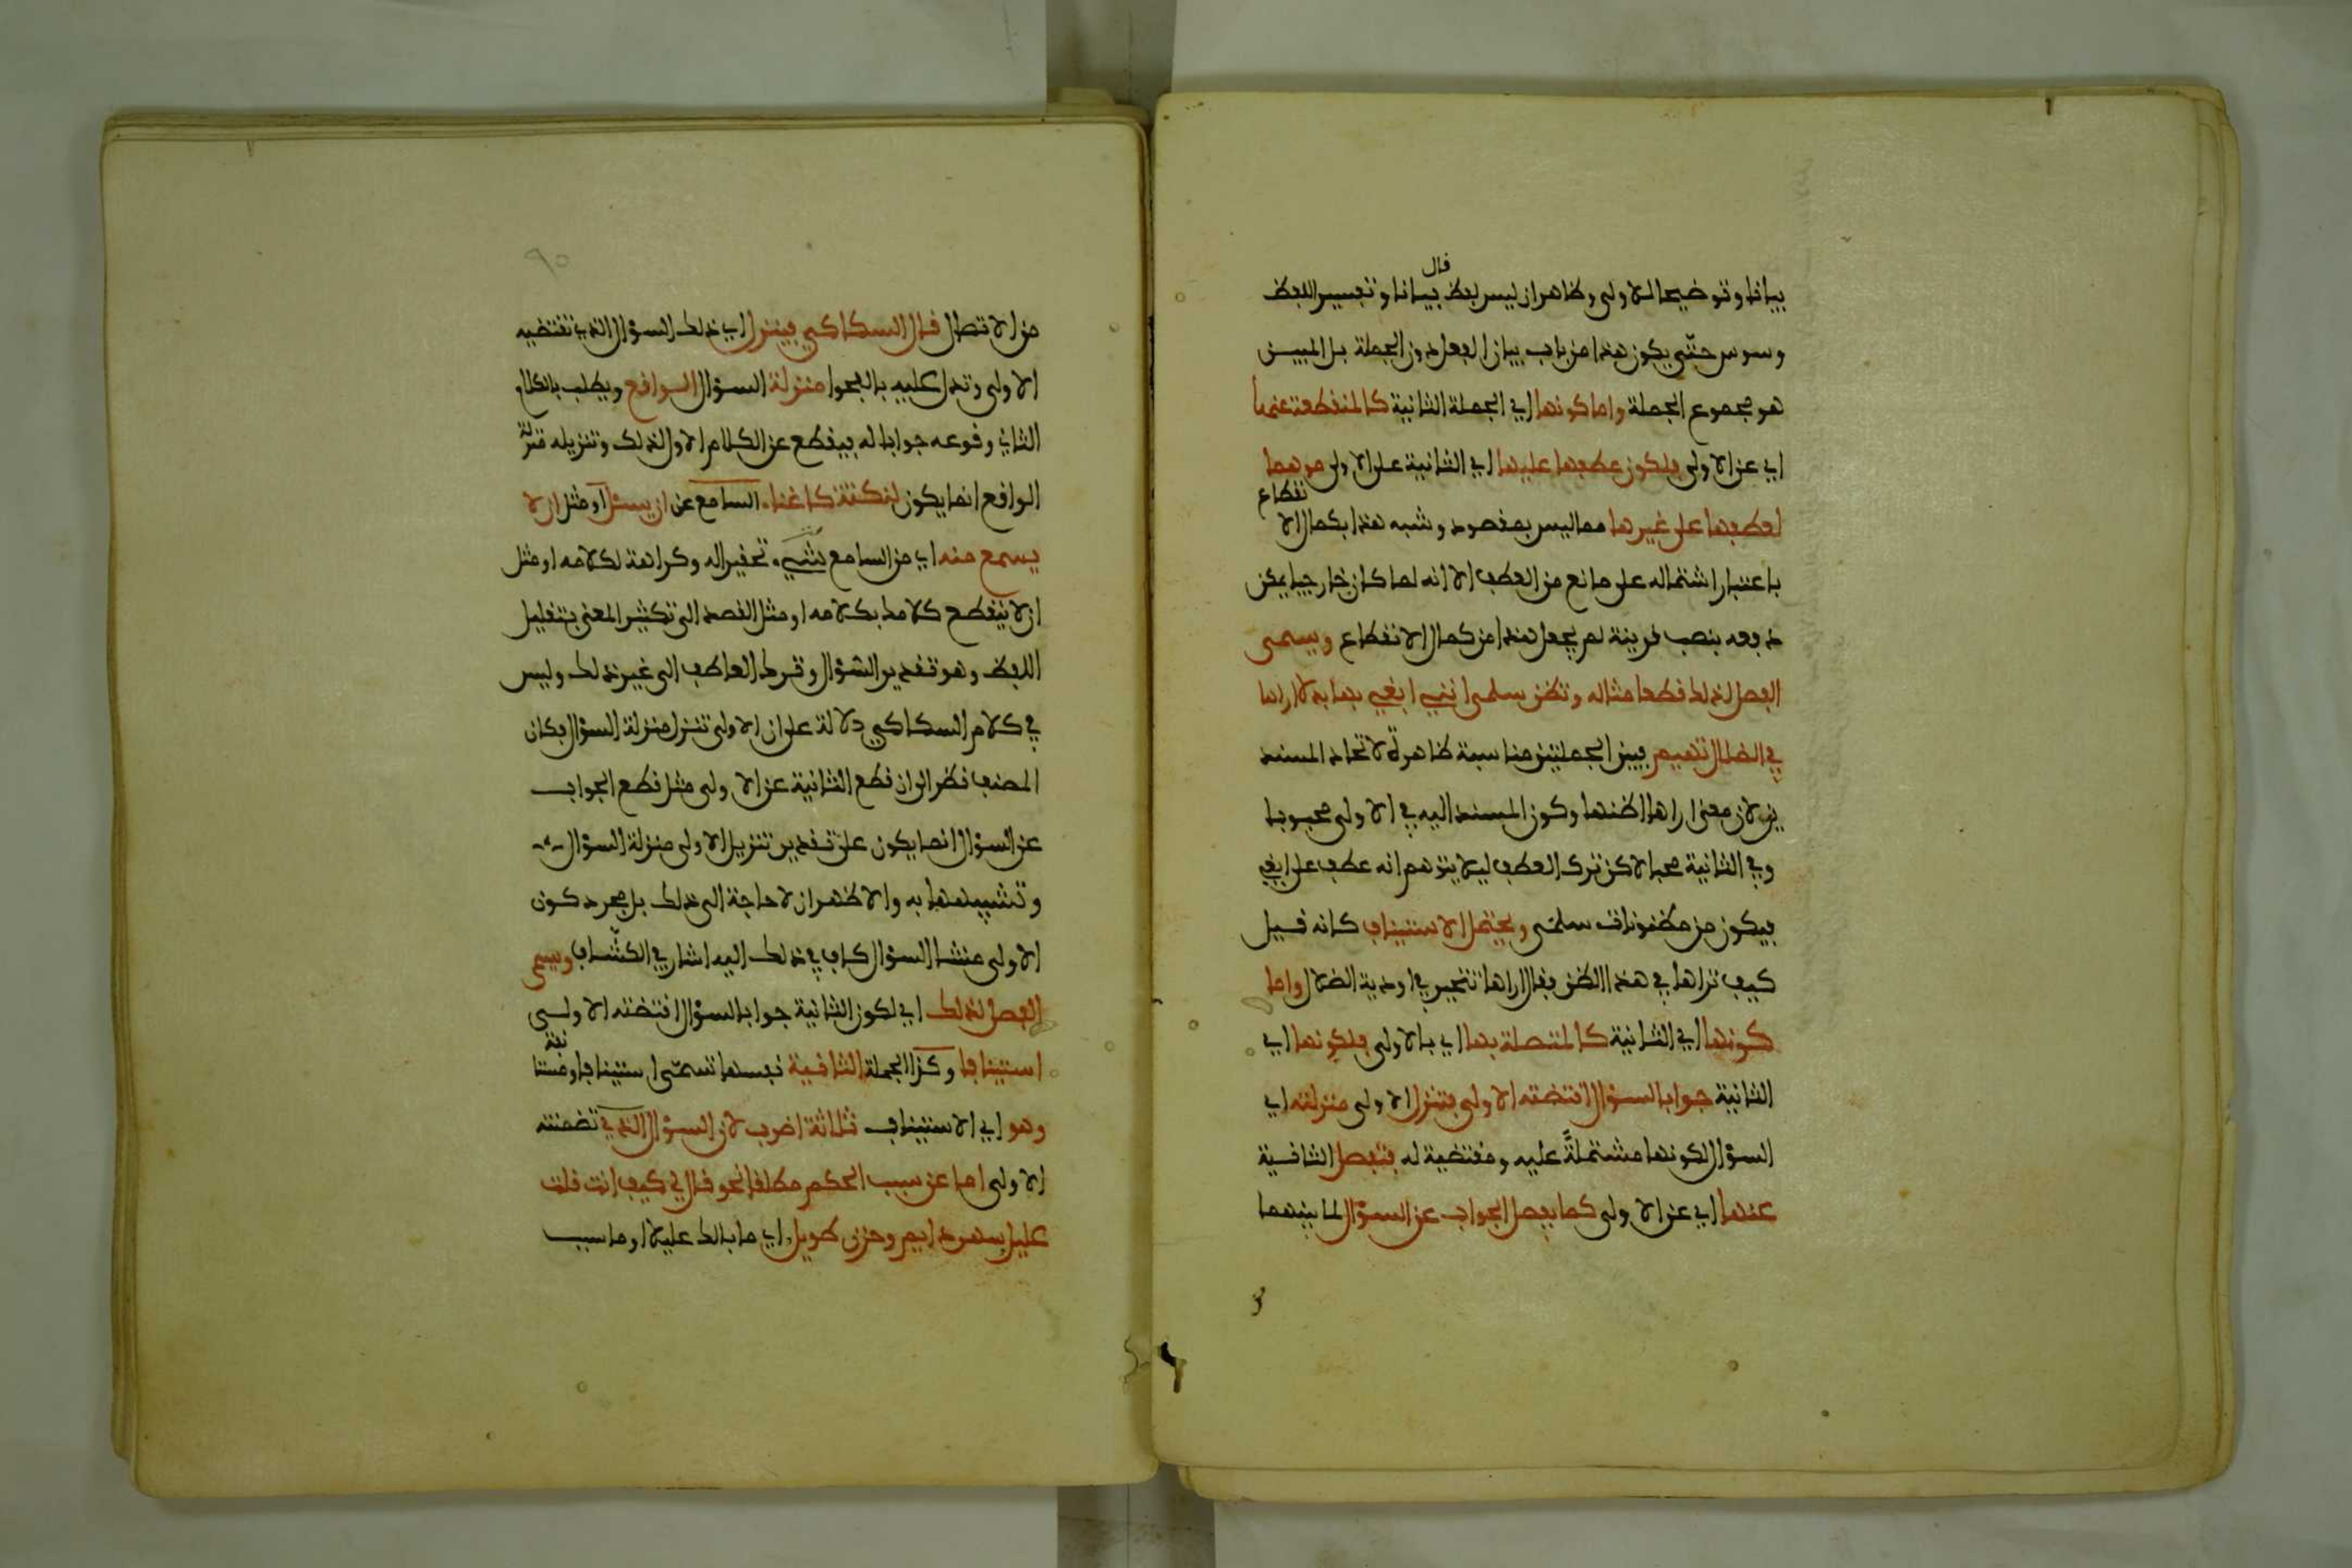 قال
بيانا وتوضيحا للاولى وظاهر ان ليس لفظ بيانا وتفسير اللفظ
وسوس حتّى يكون هذا من باب بيان الفعل دون الجملة بل المبين
هو مجموع الجملة واما كونها اي الجملة الثانية كالمنقطعة عنها
اي عن الاولى فلكون عطفها عليها اي الثانية على الاولى موهما
لعطفها على غيرها مما ليس بمقصود وشبه هذا بكمال الا نقطاع
باعتبار اشتماله على مانع من العطف الا انه لما كان خارجيا يمكن
دفعه بنصب قرينة لم يجعل هذا من كمال الانقطاع ويسمى
الفصل لذلك قطعا مثاله وتظن سلمى انني ابغي بها بدلا اراها
في الضلال تهيم فبين الجملتين مناسبة ظاهرة لاتحاد المسند
ين لان معنى اراها اظنها وكون المسند اليه في الاولى محبوبا
وفي الثانية محبا لاكن ترك العطف ليلا يتوهم انه عطف على ابغي
فيكون من مظنونات سلمى ويحتمل الاستيناف كانه قيل
كيف تراها في هذا الظن فقال اراها تتحير في اودية الضلال واما
كونها اي الثانية كالمتصلة بها اي بالاولى فلكونها اي
الثانية جوابا لسؤال اقتضته الاولى فتنزل الاولى منزلته اي
السؤال لكونها مشتملةً عليه ومقتضية له فتفصل الثانية
عنها اي عن الاولى كما يفصل الجواب عن السؤال لما بينهما
٩٥
من الاتصال قال السكاكي فينزل اي ذلك السؤال الذي تقتضيه
الاولى وتدل عليه بالفحوا منزلة السؤال الواقع ويطلب بالكلام
الثاني وقوعه جوابا له فيقطع عن الكلام الاول لذلك وتنزيله منزلة
الواقع انما يكون لنكتة كاغناء السامع عن ان يسئل او مثل ان لا
يسمع منه اي من السامع شيء تحقيرا له وكراهة لكلامه او مثل
ان لا ينقطع كلامك بكلامه او مثل القصد الى تكثير المعنى بتقليل
اللفظ وهو تقدير السؤال وترك العاطف الى غير ذلك وليس
في كلام السكاكي دلالة على ان الاولى تنزل منزلة السؤال فكان
المصنف نظر الى ان قطع الثانية عن الاولى مثل قطع الجواب
عن السؤال انما يكون على تقدير تنزيل الاولى منزلة السؤال
وتشبيهها به والاظهر ان لا حاجة الى ذلك بل مجرد كون
الاولى منشا للسؤال كاف في ذلك اليه اشار في الكشّاف ويسمى
الفصل لذلك اي لكون الثانية جوابا لسؤال اقتضته الاولى
استينافا وكذا الجملة الثانية نفسها تسمّى استينافا ومستانفة
وهو اي الاستيناف ثلاثة اضرب لان السؤال الذي تضمنته
الاولى اما عن سبب الحكم مطلقا نحو قال لي كيف انت قلت
عليل سهر دايم وحزن طويل اي ما بالك عليلا او ما سبب